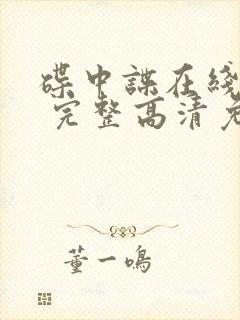 碟中諜在綫
完整高清
董一鳴